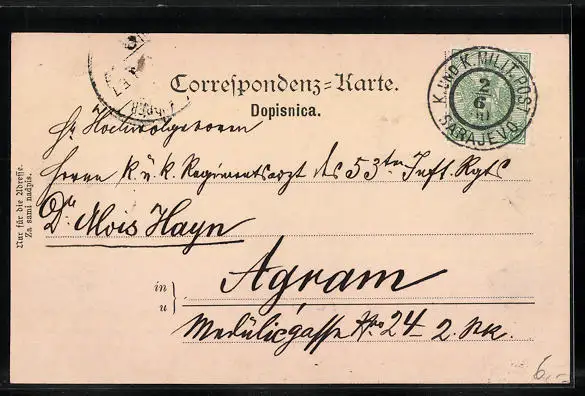 Correspondenz-Karte.
Dopisnica.
K. UND K. MILIT. POST
2
6
SARAJEVO
Sr Hochwolgeboren
Herrn K. u. k. Regimentsarzt des 53tn Inft. Rgts
Dr. Alois Hayn
in
u
Agram
Medulicgasse Nro 24 2. Stk.
Nur für die Adresse.
Za sami nadpis.
6,-